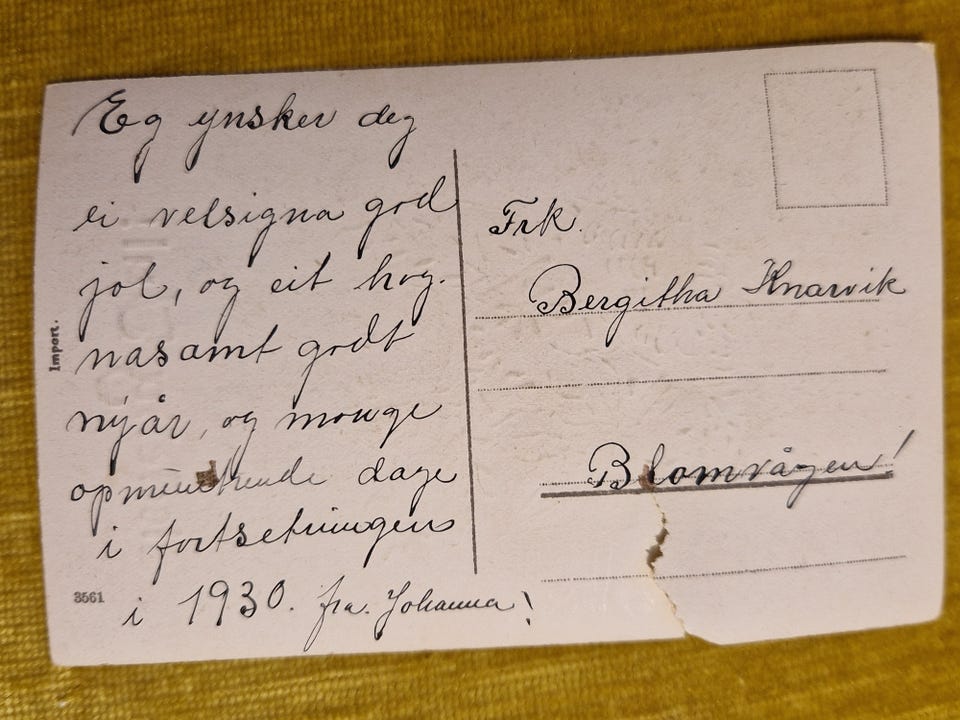 Eg ynsker deg
ei velsigna god
jol, og eit hug.
nasamt godt
nyår, og mange
opmuntrende dage
i fortsetningen
i 1930. fra. Johanna!
Frk.
Bergitha Knarvik
Blomvågen!
Import.
3561